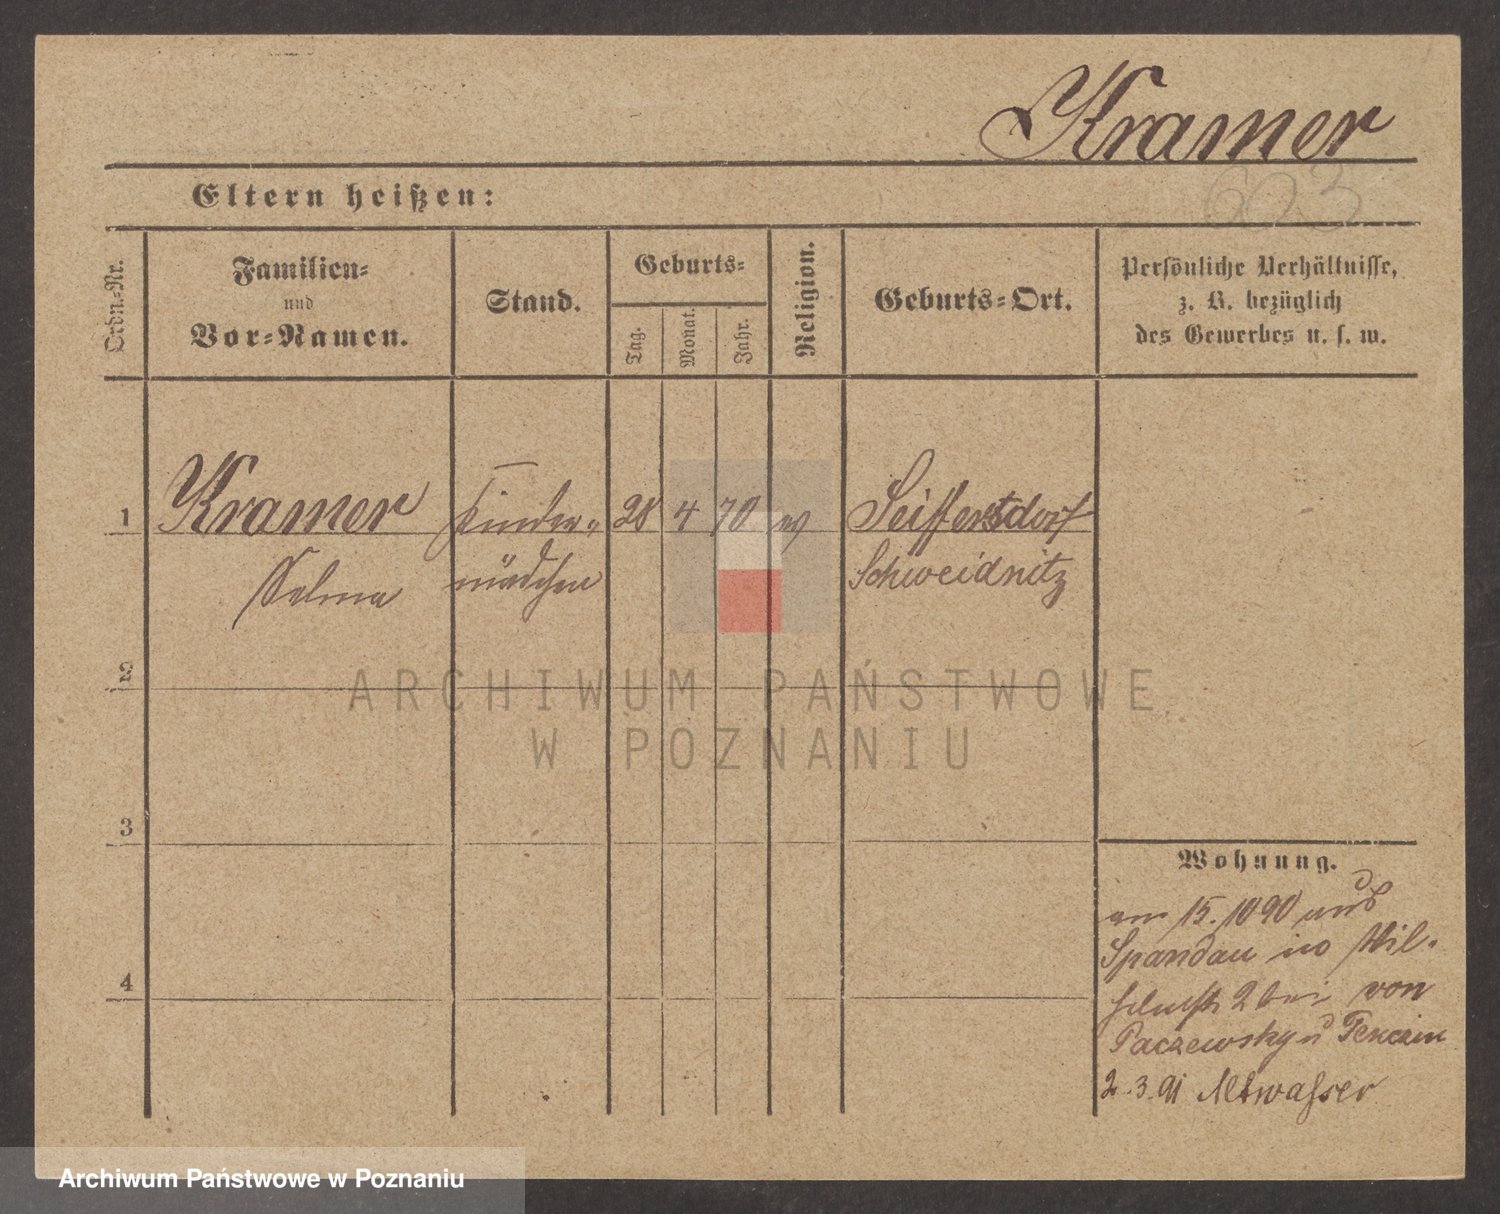 Kramer
623
Eltern heißen:
Ordn.-Nr.
Familien-
und
Vor-Namen.
Stand.
Geburts-
Tag.
Monat.
Jahr.
Religion.
Geburts-Ort.
Persönliche Verhältnisse,
z. B. bezüglich
des Gewerbes u. s. w.
1
Kramer
Selma
Kinder-
mädchen
28
4
70
ev
Seiffersdorf
Schweidnitz
2
3
4
Wohnung.
am 15.10 90 aus
Spandau no Wil-
helmstr 2 bei von
Paczewsky u Tenczin
2.3.91 Altwasser
ARCHIWUM PAŃSTWOWE
W POZNANIU
Archiwum Państwowe w Poznaniu